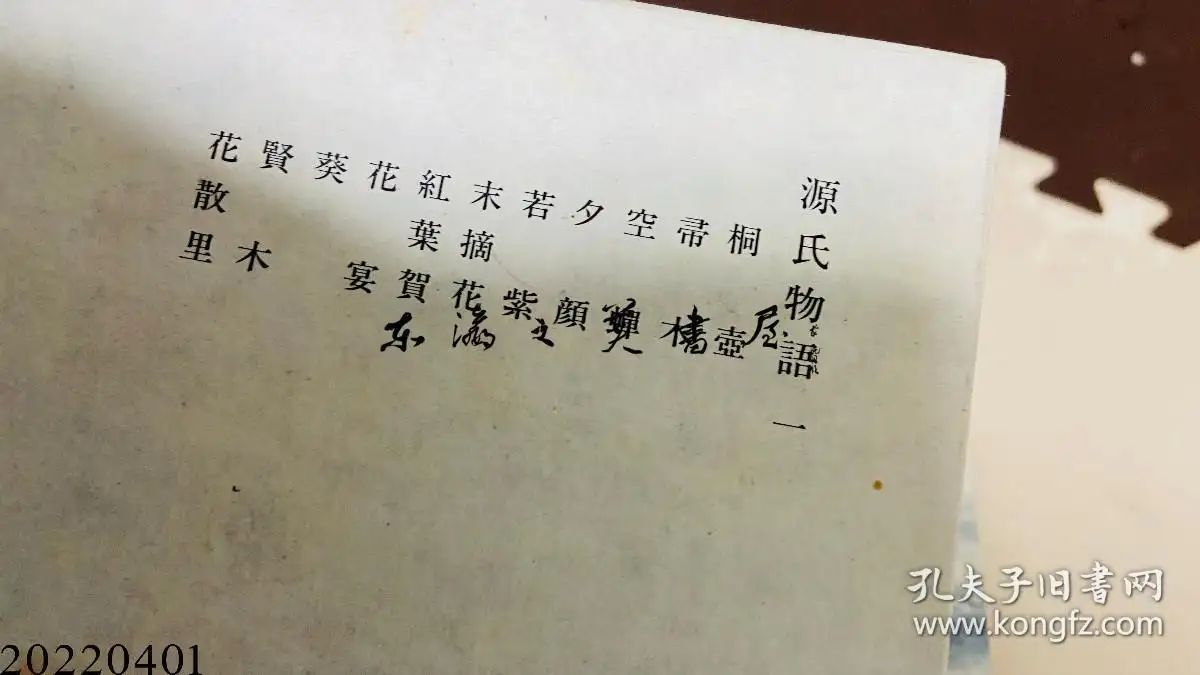 源氏物語 一
桐壺
帚木
空蟬
夕顔
若紫
末摘花
紅葉賀
花宴
葵
賢木
花散里
东瀛之書屋
孔夫子旧書网
www.kongfz.com
20220401